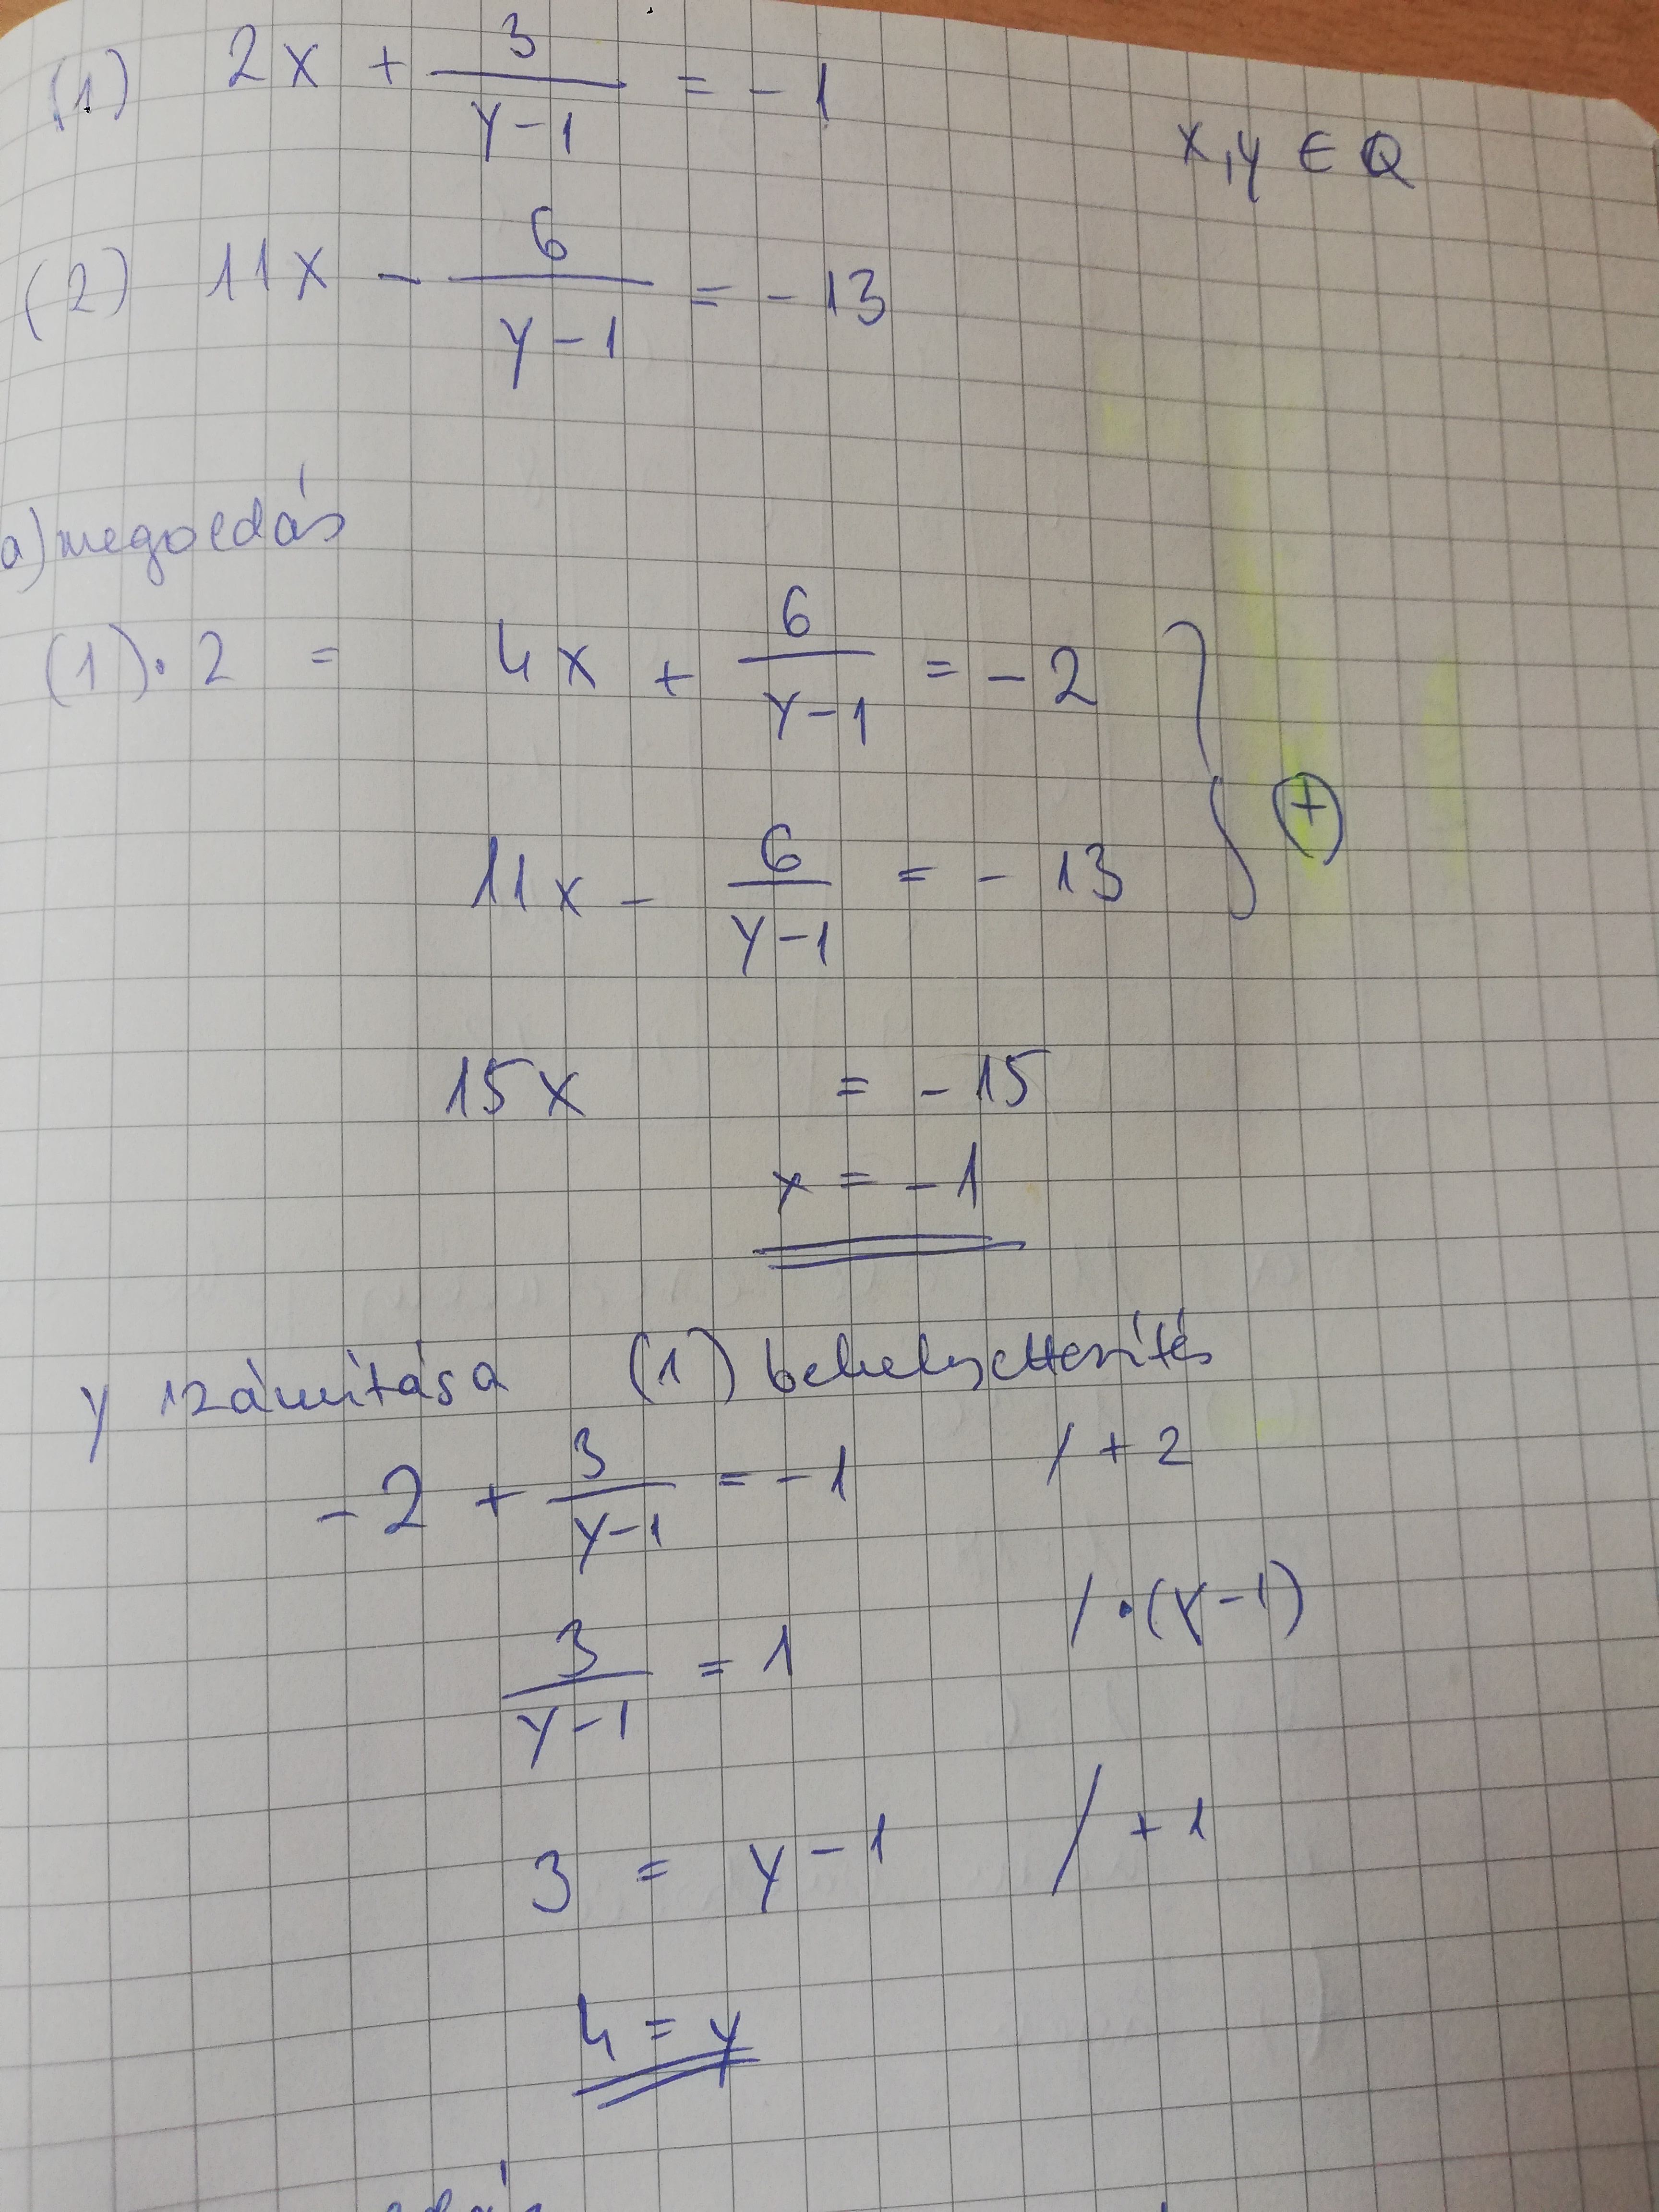 (1) 2x + 3/(y-1) = -1
x,y ∈ Q
(2) 11x - 6/(y-1) = -13
a) megoldás
(1)·2 = 4x + 6/(y-1) = -2
⊕
11x - 6/(y-1) = -13
15x = -15
x = -1
y számítása (1) behelyettesítés
-2 + 3/(y-1) = -1 / +2
3/(y-1) = 1 / ·(y-1)
3 = y-1 / +1
4 = y